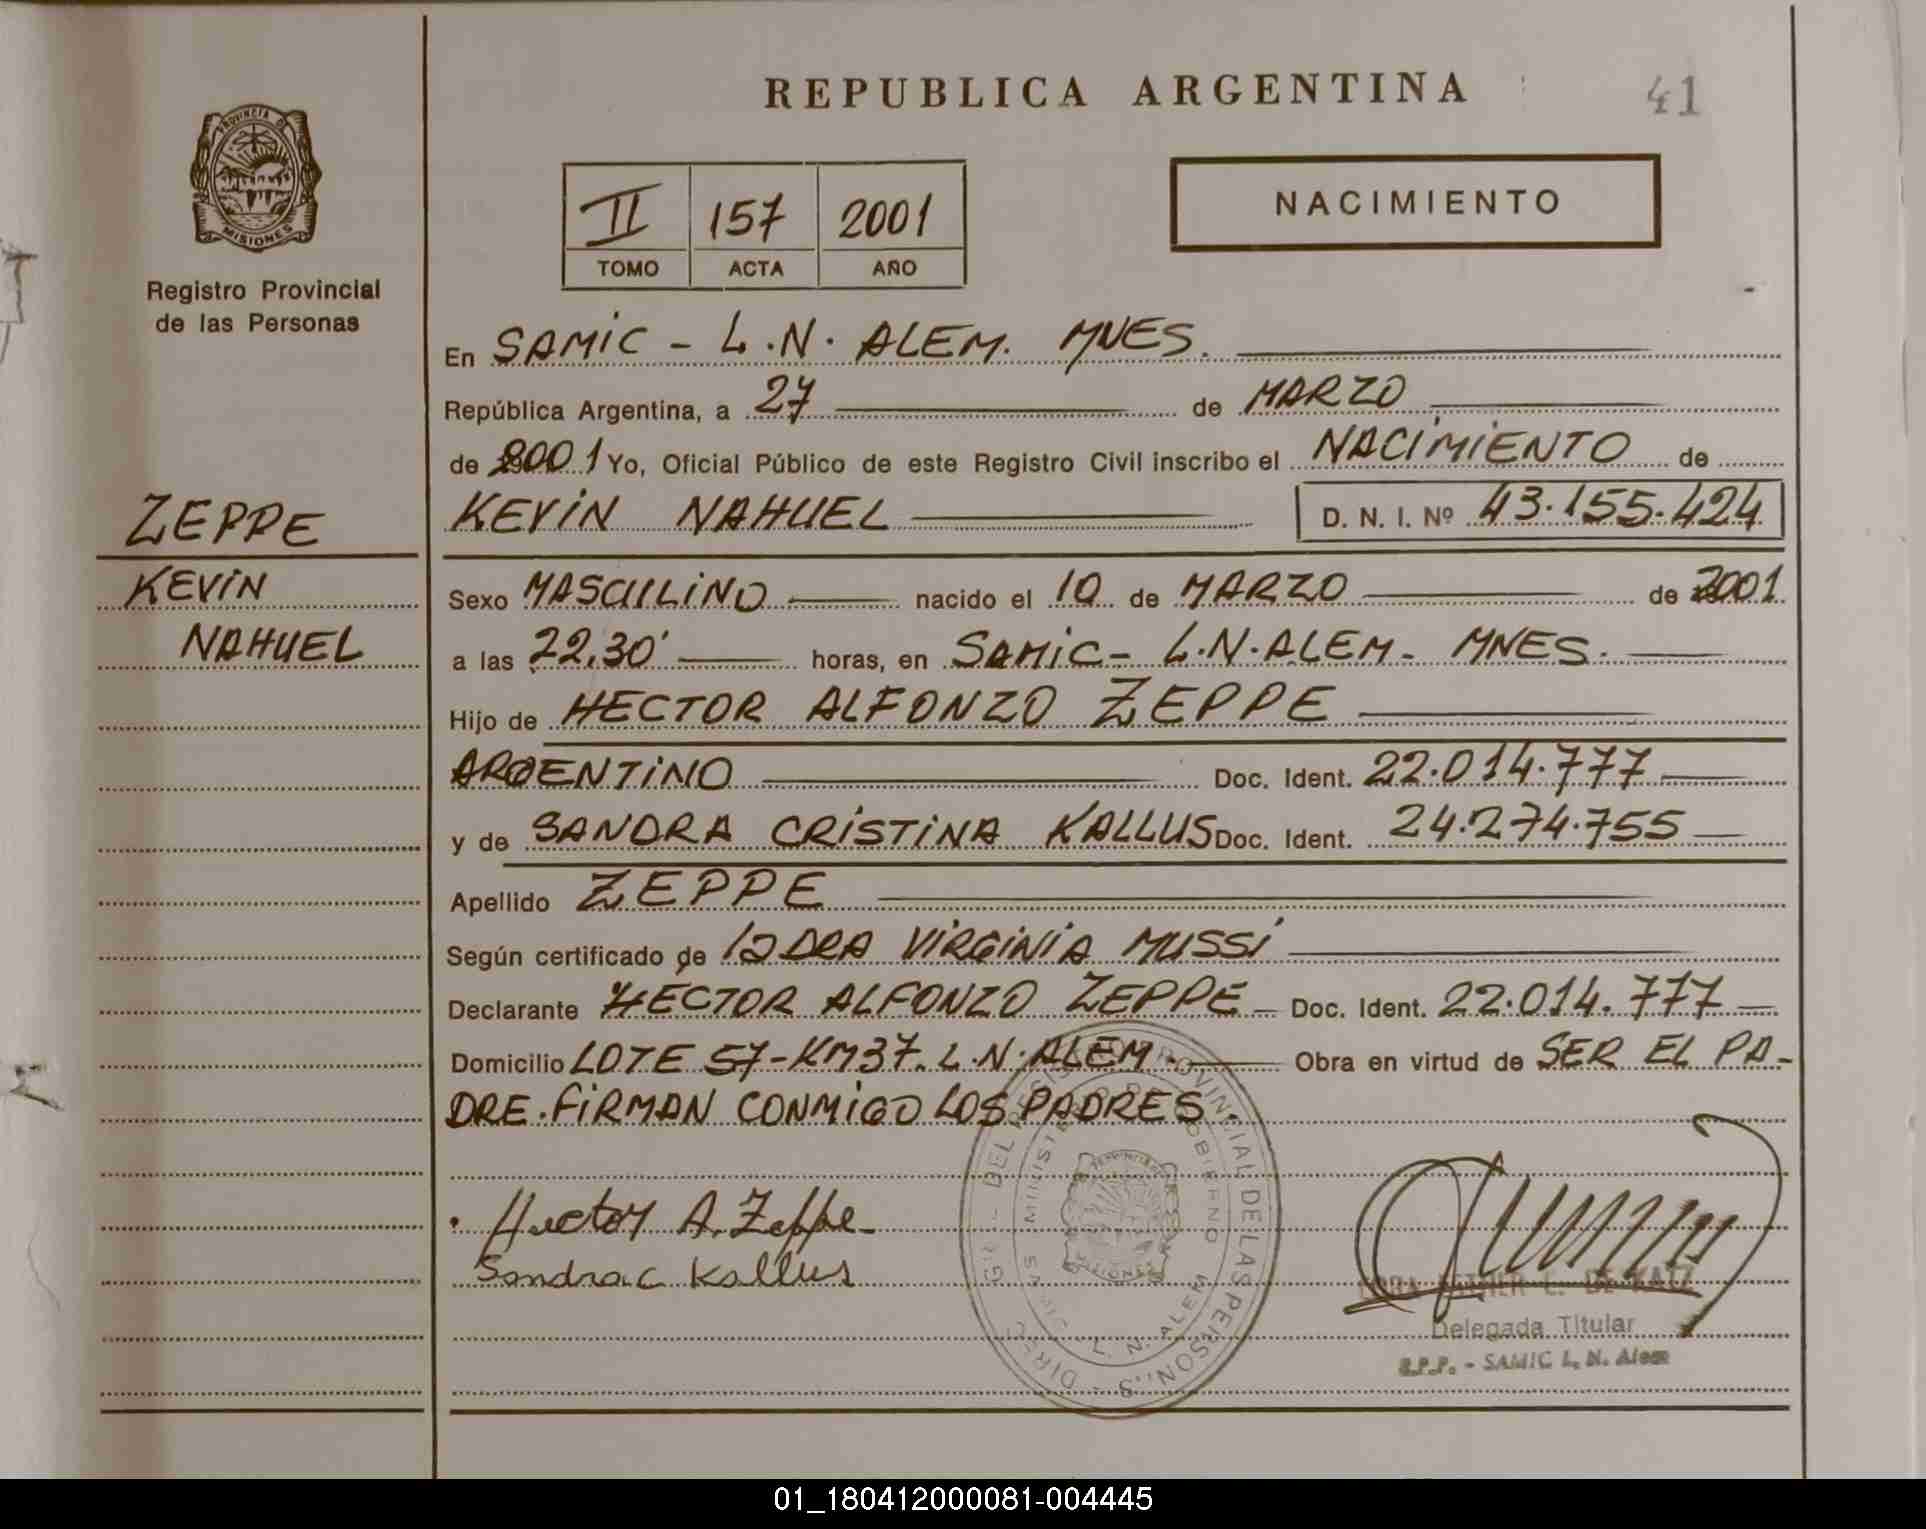 REPUBLICA ARGENTINA
41
PROVINCIA DE
MISIONES
Registro Provincial
de las Personas
II 157 2001
TOMO ACTA AÑO
NACIMIENTO
En SAMIC - L.N. ALEM. MNES.
República Argentina, a 27 de MARZO
de 2001 Yo, Oficial Público de este Registro Civil inscribo el NACIMIENTO de
KEVIN NAHUEL D. N. I. Nº 43.155.424
ZEPPE
KEVIN
NAHUEL
Sexo MASCULINO nacido el 10 de MARZO de 2001
a las 22,30' horas, en SAMIC - L.N. ALEM - MNES.
Hijo de HECTOR ALFONZO ZEPPE
ARGENTINO Doc. Ident. 22.014.777
y de SANDRA CRISTINA KALLUS Doc. Ident. 24.274.755
Apellido ZEPPE
Según certificado de la DRA VIRGINIA MUSSI
Declarante HECTOR ALFONZO ZEPPE - Doc. Ident. 22.014.777
Domicilio LOTE 57-KM37. L.N. ALEM - Obra en virtud de SER EL PA-
DRE. FIRMAN CONMIGO LOS PADRES.
Hector A. Zeppe
Sandra C Kallus
PROVINCIAL DE LAS PERSONAS
L. N. ALEM
MISIONES
DE KATZ
Delegada Titular
R.P.P. - SAMIC L. N. Alem
01_180412000081-004445